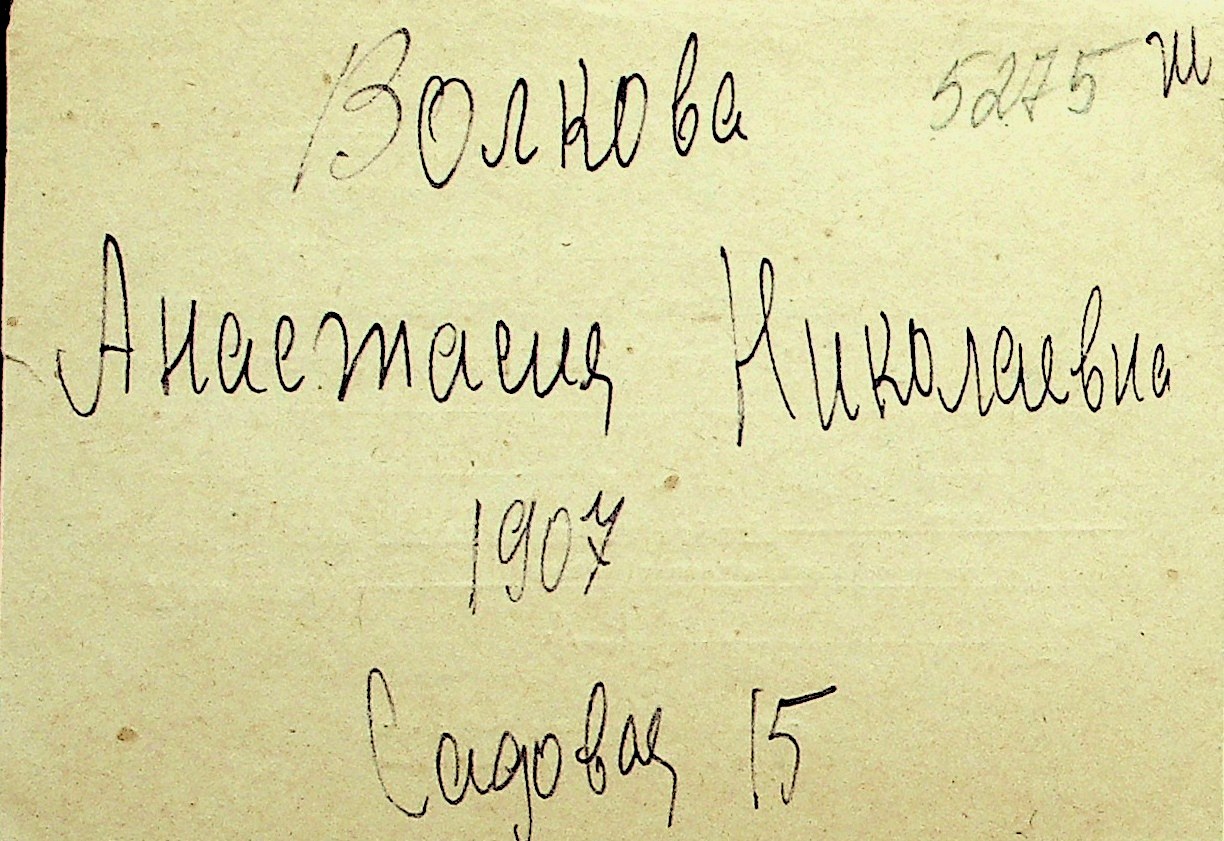 Волкова 5275 ш
Анастасия Николаевна
1907
Садовая 15